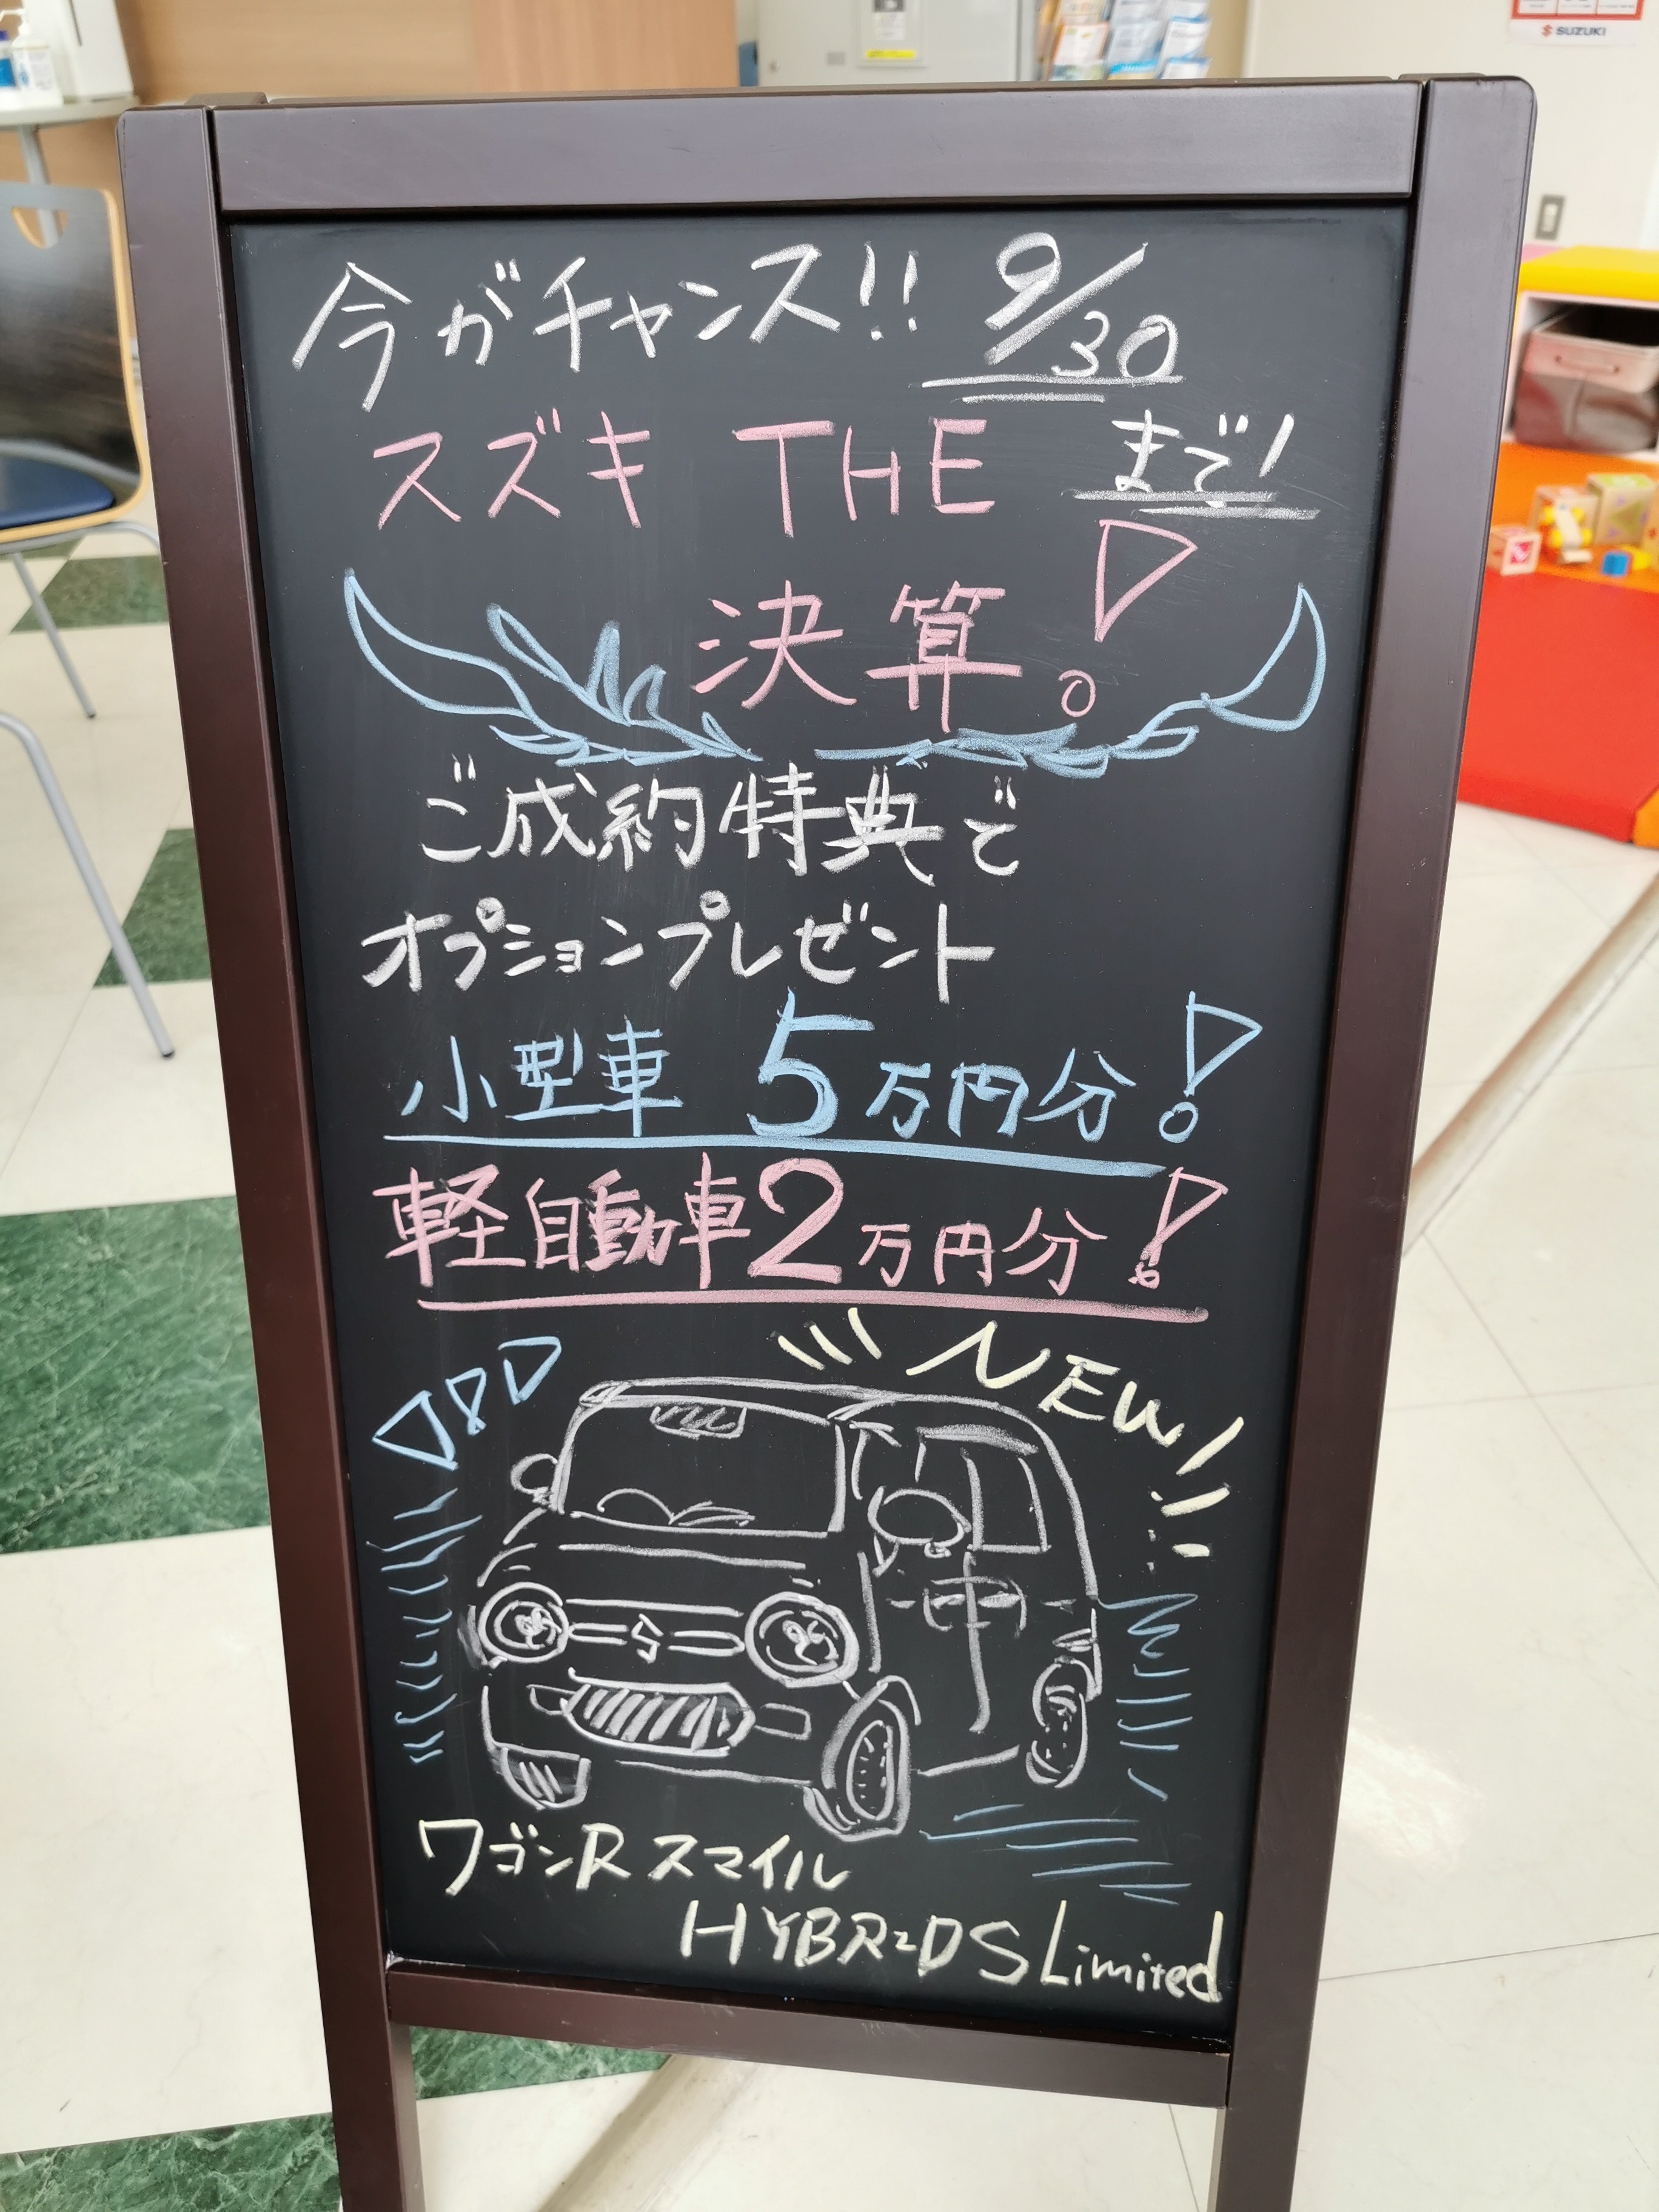 SUZUKI
今がチャンス!! 9/30
まで!
スズキ THE
決算。
ご成約特典で
オプションプレゼント
小型車 5万円分!
軽自動車2万円分!
NEW!
ワゴンR スマイル
HYBRID S Limited